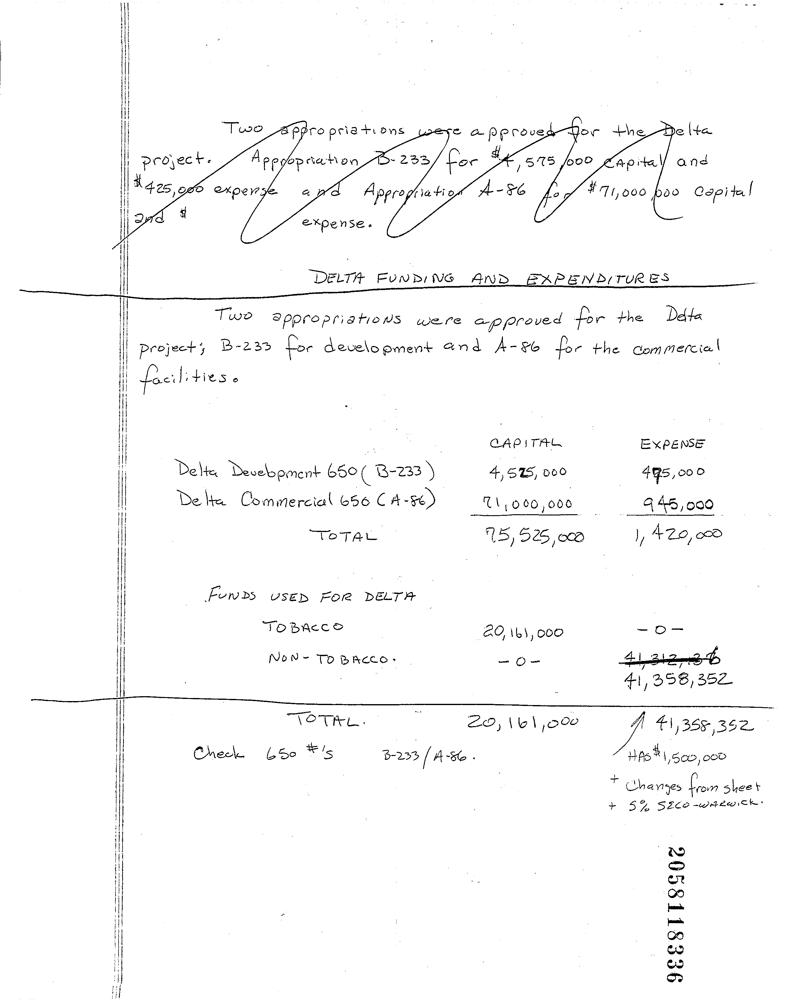 Two appropriations were approved for the Delta
project. Appropriation B-233 for $4,575,000 capital and
$425,000 expense and Appropriation A-86 for $71,000,000 capital
and $ expense.
DELTA FUNDING AND EXPENDITURES
Two appropriations were approved for the Delta
project; B-233 for development and A-86 for the commercial
facilities.
CAPITAL EXPENSE
Delta Development 650 (B-233) 4,525,000 475,000
Delta Commercial 650 (A-86) 71,000,000 945,000
TOTAL 75,525,000 1,420,000
FUNDS USED FOR DELTA
TOBACCO 20,161,000 -0-
NON-TOBACCO. -0-
41,358,352
TOTAL. 20,161,000 41,358,352
Check 650 #'s B-233/A-86. HAS $1,500,000
+ Changes from sheet
+ 5% SECO-WARWICK.
2058118336